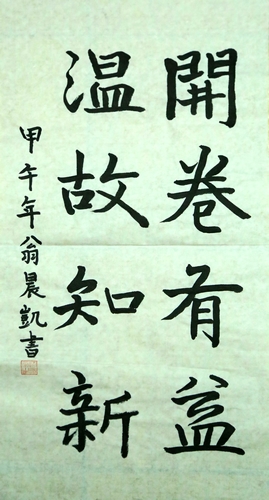 開卷有益
温故知新
甲午年翁晨凱書